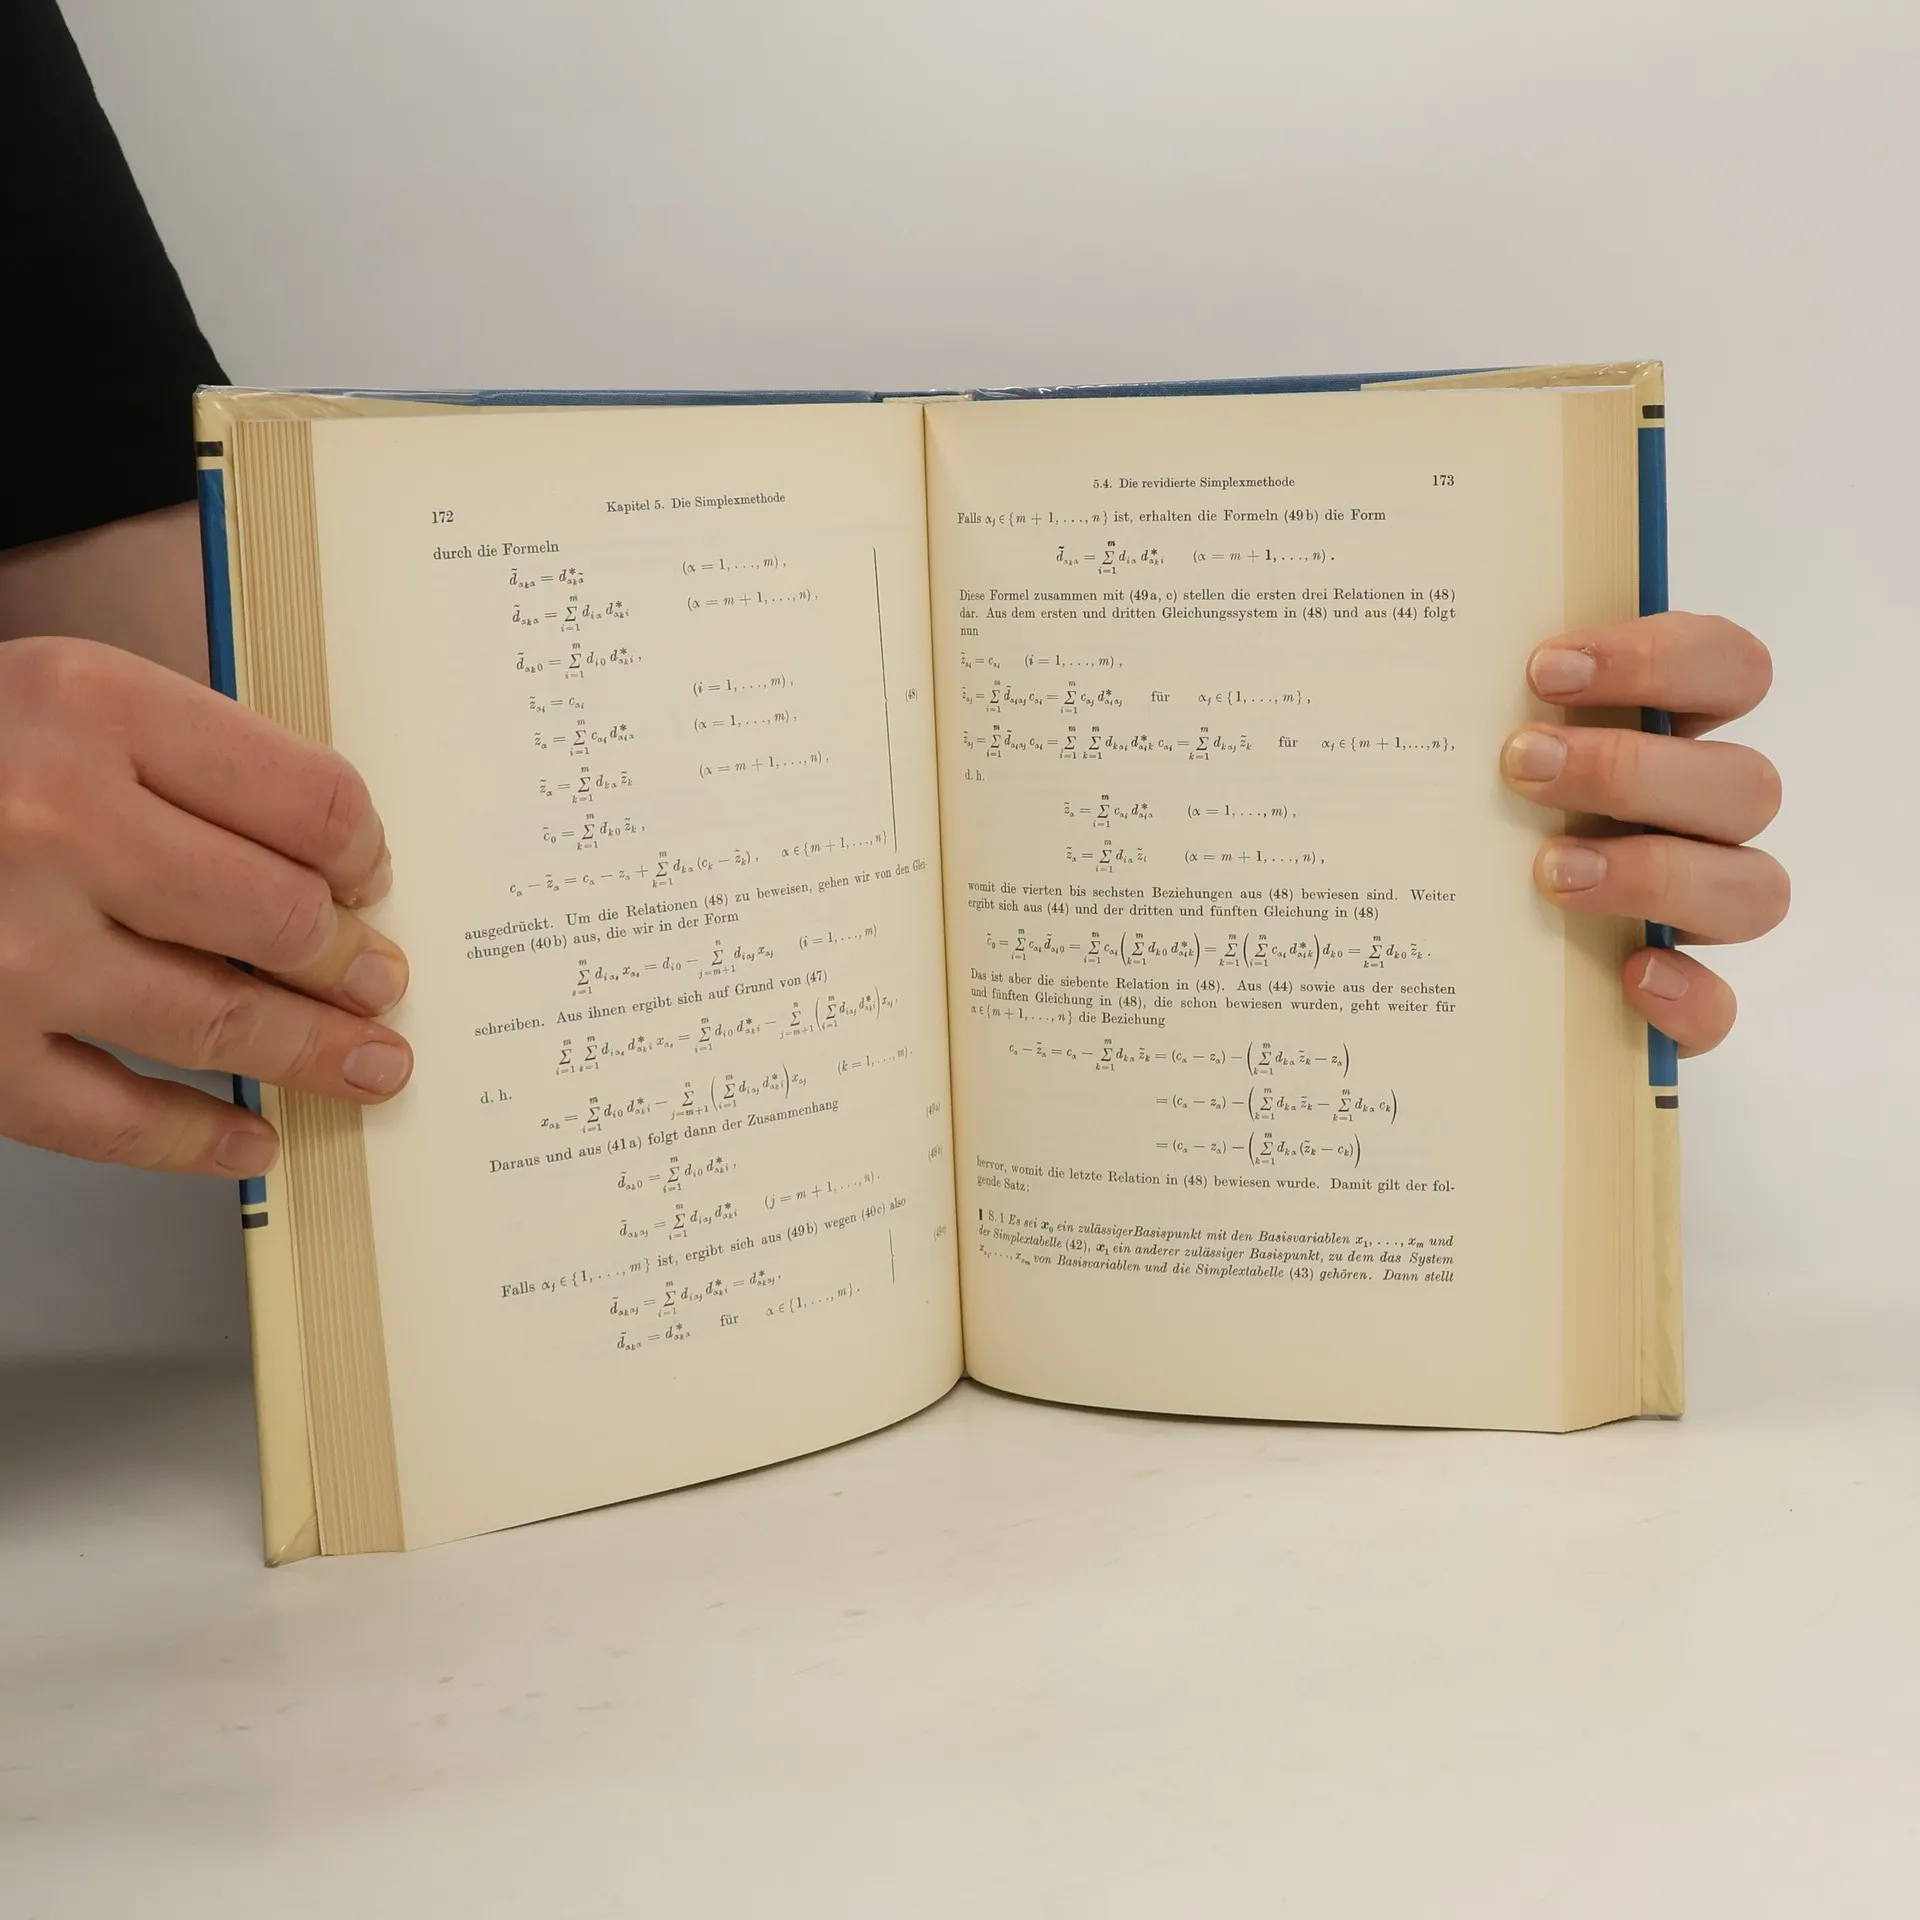 172
Kapitel 5. Die Simplexmethode
durch die Formeln
d̃_{α_k α} = d*_{α_k α̃} (α = 1, . . ., m) ,
d̃_{α_k α} = ∑_{i=1}^{m} d_{iα} d*_{α_k i} (α = m + 1, . . ., n) ,
d̃_{α_k 0} = ∑_{i=1}^{m} d_{i0} d*_{α_k i} ,
z̃_{α_i} = c_{α_i} (i = 1, . . ., m) ,
z̃_α = ∑_{i=1}^{m} c_{α_i} d*_{α_i α} (α = 1, . . ., m) ,
(48)
z̃_α = ∑_{k=1}^{m} d_{kα} z̃_k (α = m + 1, . . ., n) ,
c̃_0 = ∑_{k=1}^{m} d_{k0} z̃_k ,
c_α − z̃_α = c_α − z_α + ∑_{k=1}^{m} d_{kα} (c_k − z̃_k) , α ∈ {m + 1, . . ., n}
ausgedrückt. Um die Relationen (48) zu beweisen, gehen wir von den Glei-
chungen (40b) aus, die wir in der Form
∑_{s=1}^{m} d_{iα_s} x_{α_s} = d_{i0} − ∑_{j=m+1}^{n} d_{iα_j} x_{α_j} (i = 1, . . ., m)
schreiben. Aus ihnen ergibt sich auf Grund von (47)
∑_{i=1}^{m} ∑_{s=1}^{m} d_{iα_s} d*_{α_k i} x_{α_s} = ∑_{i=1}^{m} d_{i0} d*_{α_k i} − ∑_{j=m+1}^{n} (∑_{i=1}^{m} d_{iα_j} d*_{α_k i}) x_{α_j} ,
d. h.
x_{α_k} = ∑_{i=1}^{m} d_{i0} d*_{α_k i} − ∑_{j=m+1}^{n} (∑_{i=1}^{m} d_{iα_j} d*_{α_k i}) x_{α_j} (k = 1, . . ., m) .
Daraus und aus (41a) folgt dann der Zusammenhang
d̃_{α_k 0} = ∑_{i=1}^{m} d_{i0} d*_{α_k i} , (49a)
d̃_{α_k α_j} = ∑_{i=1}^{m} d_{iα_j} d*_{α_k i} (j = m + 1, . . ., n) . (49b)
Falls α_j ∈ {1, . . ., m} ist, ergibt sich aus (49b) wegen (40c) also
d̃_{α_k α_j} = ∑_{i=1}^{m} d_{iα_j} d*_{α_k i} = d*_{α_k α_j} ,
(49c)
d̃_{α_k α} = d*_{α_k α} für α ∈ {1, . . ., m} .
5.4. Die revidierte Simplexmethode
173
Falls α_j ∈ {m + 1, . . ., n} ist, erhalten die Formeln (49b) die Form
d̃_{α_k α} = ∑_{i=1}^{m} d_{iα} d*_{α_k i} (α = m + 1, . . ., n) .
Diese Formel zusammen mit (49a, c) stellen die ersten drei Relationen in (48)
dar. Aus dem ersten und dritten Gleichungssystem in (48) und aus (44) folgt
nun
z̃_{α_i} = c_{α_i} (i = 1, . . ., m) ,
z̃_{α_j} = ∑_{i=1}^{m} d̃_{α_i α_j} c_{α_i} = ∑_{i=1}^{m} c_{α_j} d*_{α_i α_j} für α_j ∈ {1, . . ., m} ,
z̃_{α_j} = ∑_{i=1}^{m} d̃_{α_i α_j} c_{α_i} = ∑_{i=1}^{m} ∑_{k=1}^{m} d_{kα_j} d*_{α_i k} c_{α_i} = ∑_{k=1}^{m} d_{kα_j} z̃_k für α_j ∈ {m + 1,...,n} ,
d. h.
z̃_α = ∑_{i=1}^{m} c_{α_i} d*_{α_i α} (α = 1, . . ., m) ,
z̃_α = ∑_{i=1}^{m} d_{iα} z̃_i (α = m + 1, . . ., n) ,
womit die vierten bis sechsten Beziehungen aus (48) bewiesen sind. Weiter
ergibt sich aus (44) und der dritten und fünften Gleichung in (48)
c̃_0 = ∑_{i=1}^{m} c_{α_i} d̃_{α_i 0} = ∑_{i=1}^{m} c_{α_i} (∑_{k=1}^{m} d_{k0} d*_{α_i k}) = ∑_{k=1}^{m} (∑_{i=1}^{m} c_{α_i} d*_{α_i k}) d_{k0} = ∑_{k=1}^{m} d_{k0} z̃_k .
Das ist aber die siebente Relation in (48). Aus (44) sowie aus der sechsten
und fünften Gleichung in (48), die schon bewiesen wurden, geht weiter für
α ∈ {m + 1, . . ., n} die Beziehung
c_α − z̃_α = c_α − ∑_{k=1}^{m} d_{kα} z̃_k = (c_α − z_α) − (∑_{k=1}^{m} d_{kα} z̃_k − z_α)
= (c_α − z_α) − (∑_{k=1}^{m} d_{kα} z̃_k − ∑_{k=1}^{m} d_{kα} c_k)
= (c_α − z_α) − (∑_{k=1}^{m} d_{kα} (z̃_k − c_k))
hervor, womit die letzte Relation in (48) bewiesen wurde. Damit gilt der fol-
gende Satz:
8.1 Es sei x_0 ein zulässiger Basispunkt mit den Basisvariablen x_1, . . ., x_m und
der Simplextabelle (42), x_1 ein anderer zulässiger Basispunkt, zu dem das System
x_{α_1}, . . ., x_{α_m} von Basisvariablen und die Simplextabelle (43) gehören. Dann stellt